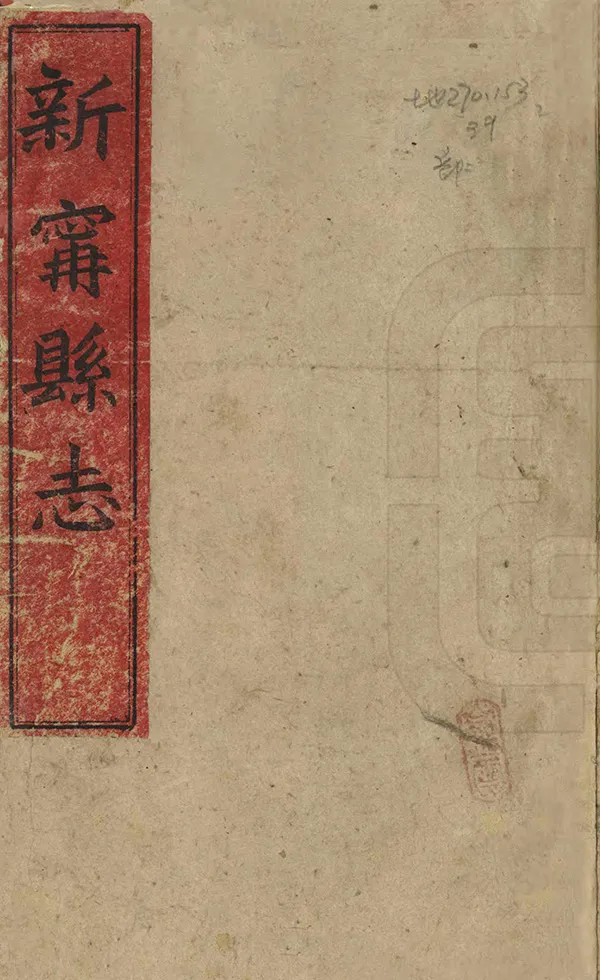 新甯縣志
地270.153
39